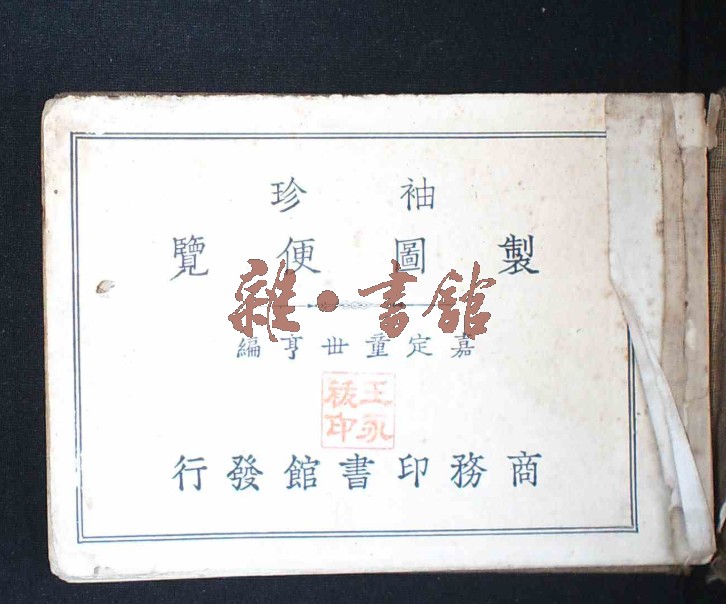 袖珍
製圖便覽
雜·書館
嘉定童世亨編
王永
印
商務印書館發行